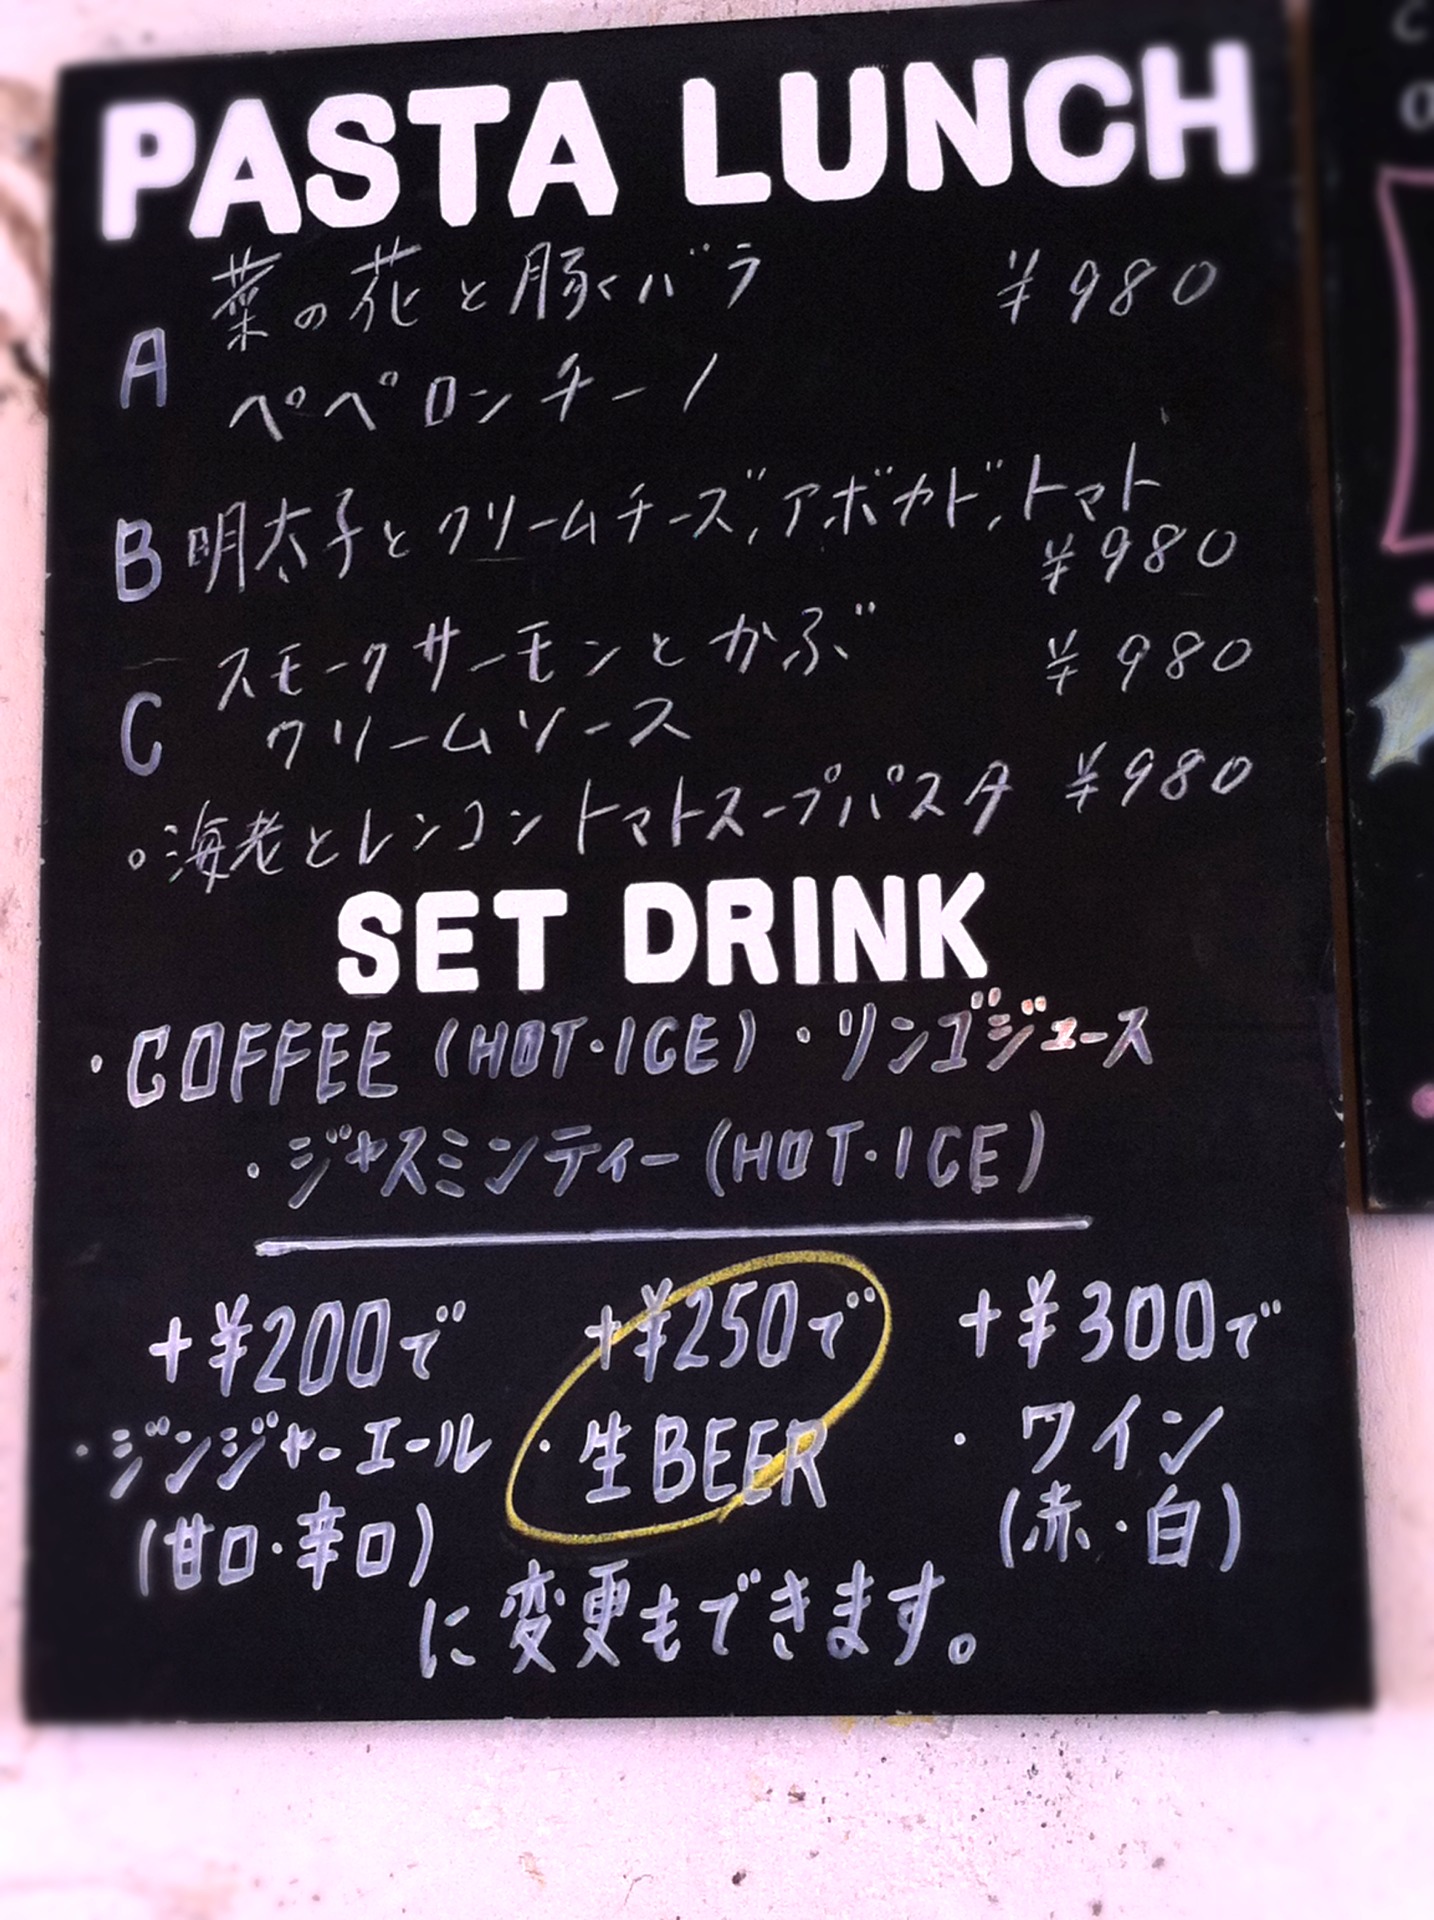 PASTA LUNCH
A 菜の花と豚バラ ¥980
ペペロンチーノ
B 明太子とクリームチーズ,アボカド,トマト
¥980
C スモークサーモンとかぶ ¥980
クリームソース
。海老とレンコントマトスープパスタ ¥980
SET DRINK
・COFFEE (HOT・ICE) ・リンゴジュース
・ジャスミンティー(HOT・ICE)
+¥200で +¥250で +¥300で
・ジンジャーエール ・生BEER ・ワイン
(甘口・辛口) (赤・白)
に変更もできます。